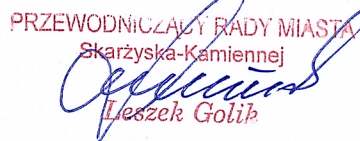 PRZEWODNICZĄCY RADY MIASTA
Skarżyska-Kamiennej
Leszek Golik